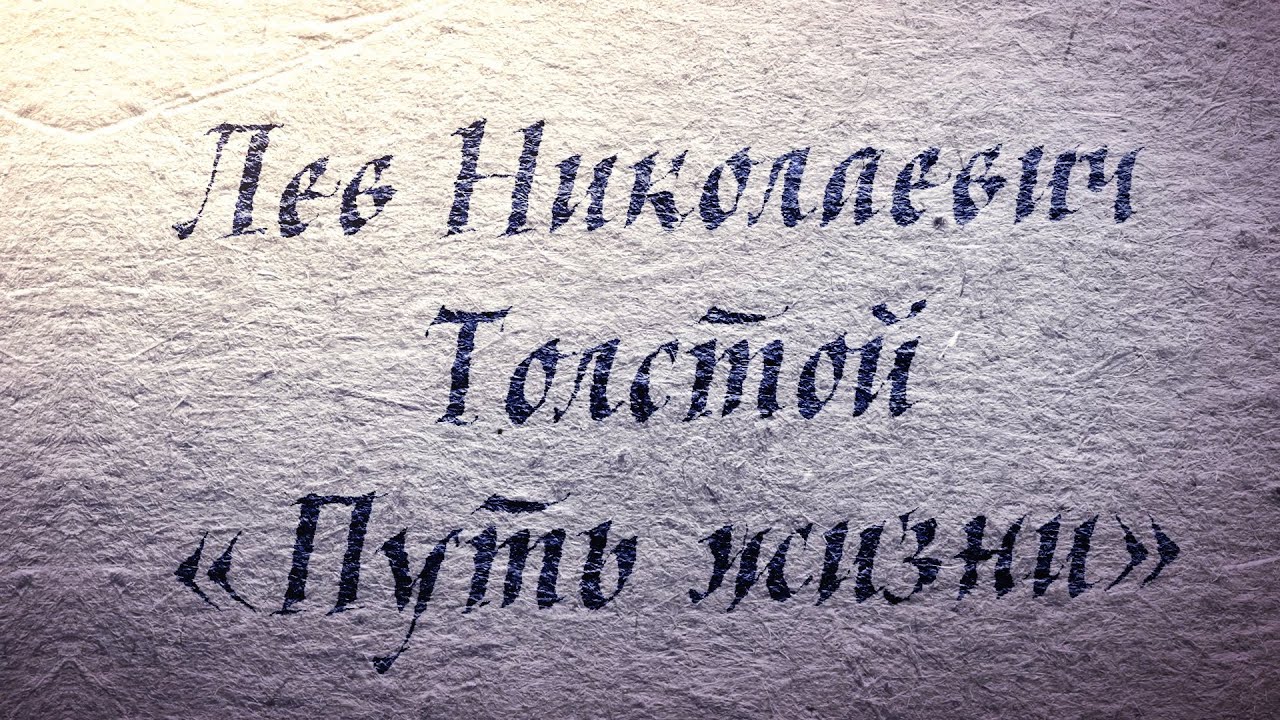 Лев Николаевич
Толстой
«Путь жизни»